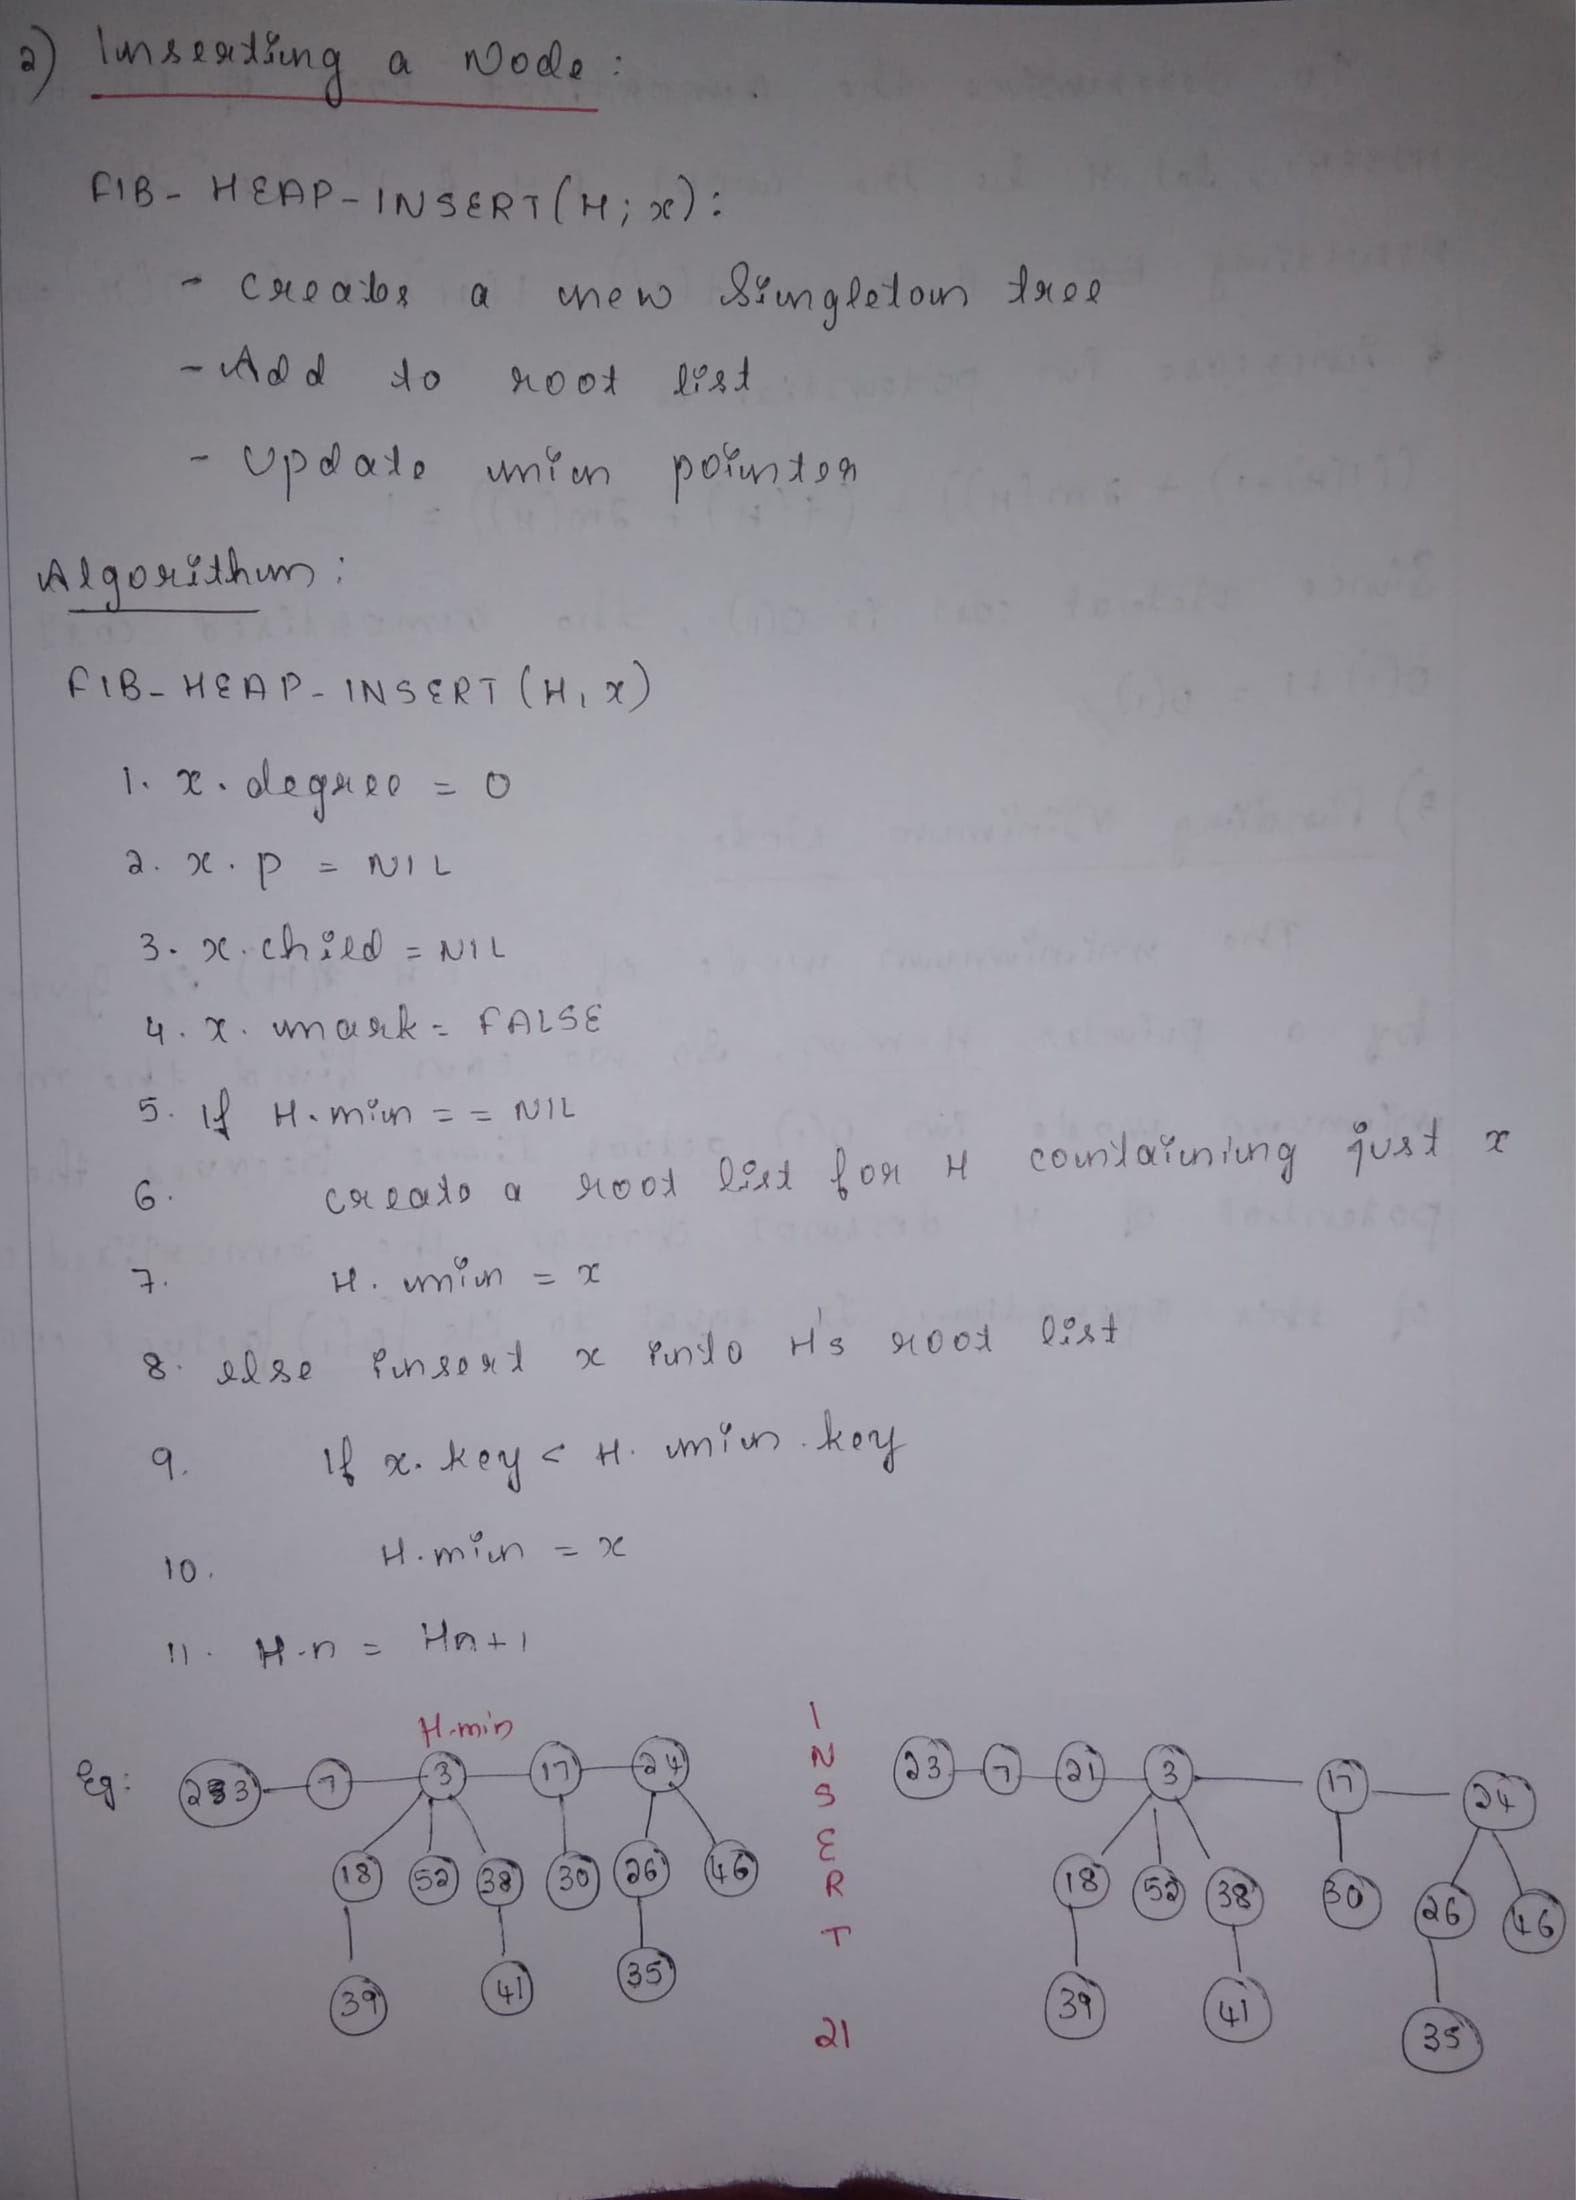 2) Inserting a Node :
FIB - HEAP - INSERT (H; x) :
- creates a new Singleton tree
- Add to root list
- Update min pointer
Algorithm :
FIB - HEAP - INSERT (H, x)
1. x. degree = 0
2. x. p = NIL
3. x. child = NIL
4. x. mark = FALSE
5. If H. min = = NIL
6. create a root list for H containing just x
7. H. min = x
8. else insert x into H's root list
9. If x. key < H. min. key
10. H. min = x
11. H.n = Hn+1
H.min
Eg: 23 7 3 17 24
18 52 38 30 26 46
39 41 35
INSERT
21
23 7 21 3 17 24
18 52 38 30 26 46
39 41 35